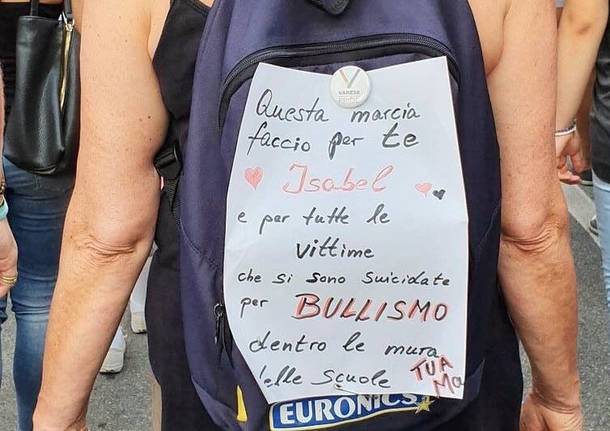 VARESE
Questa marcia
faccio per te
Isabel
e per tutte le
vittime
che si sono suicidate
per BULLISMO
dentro le mura
delle scuole TUA
EURONICS